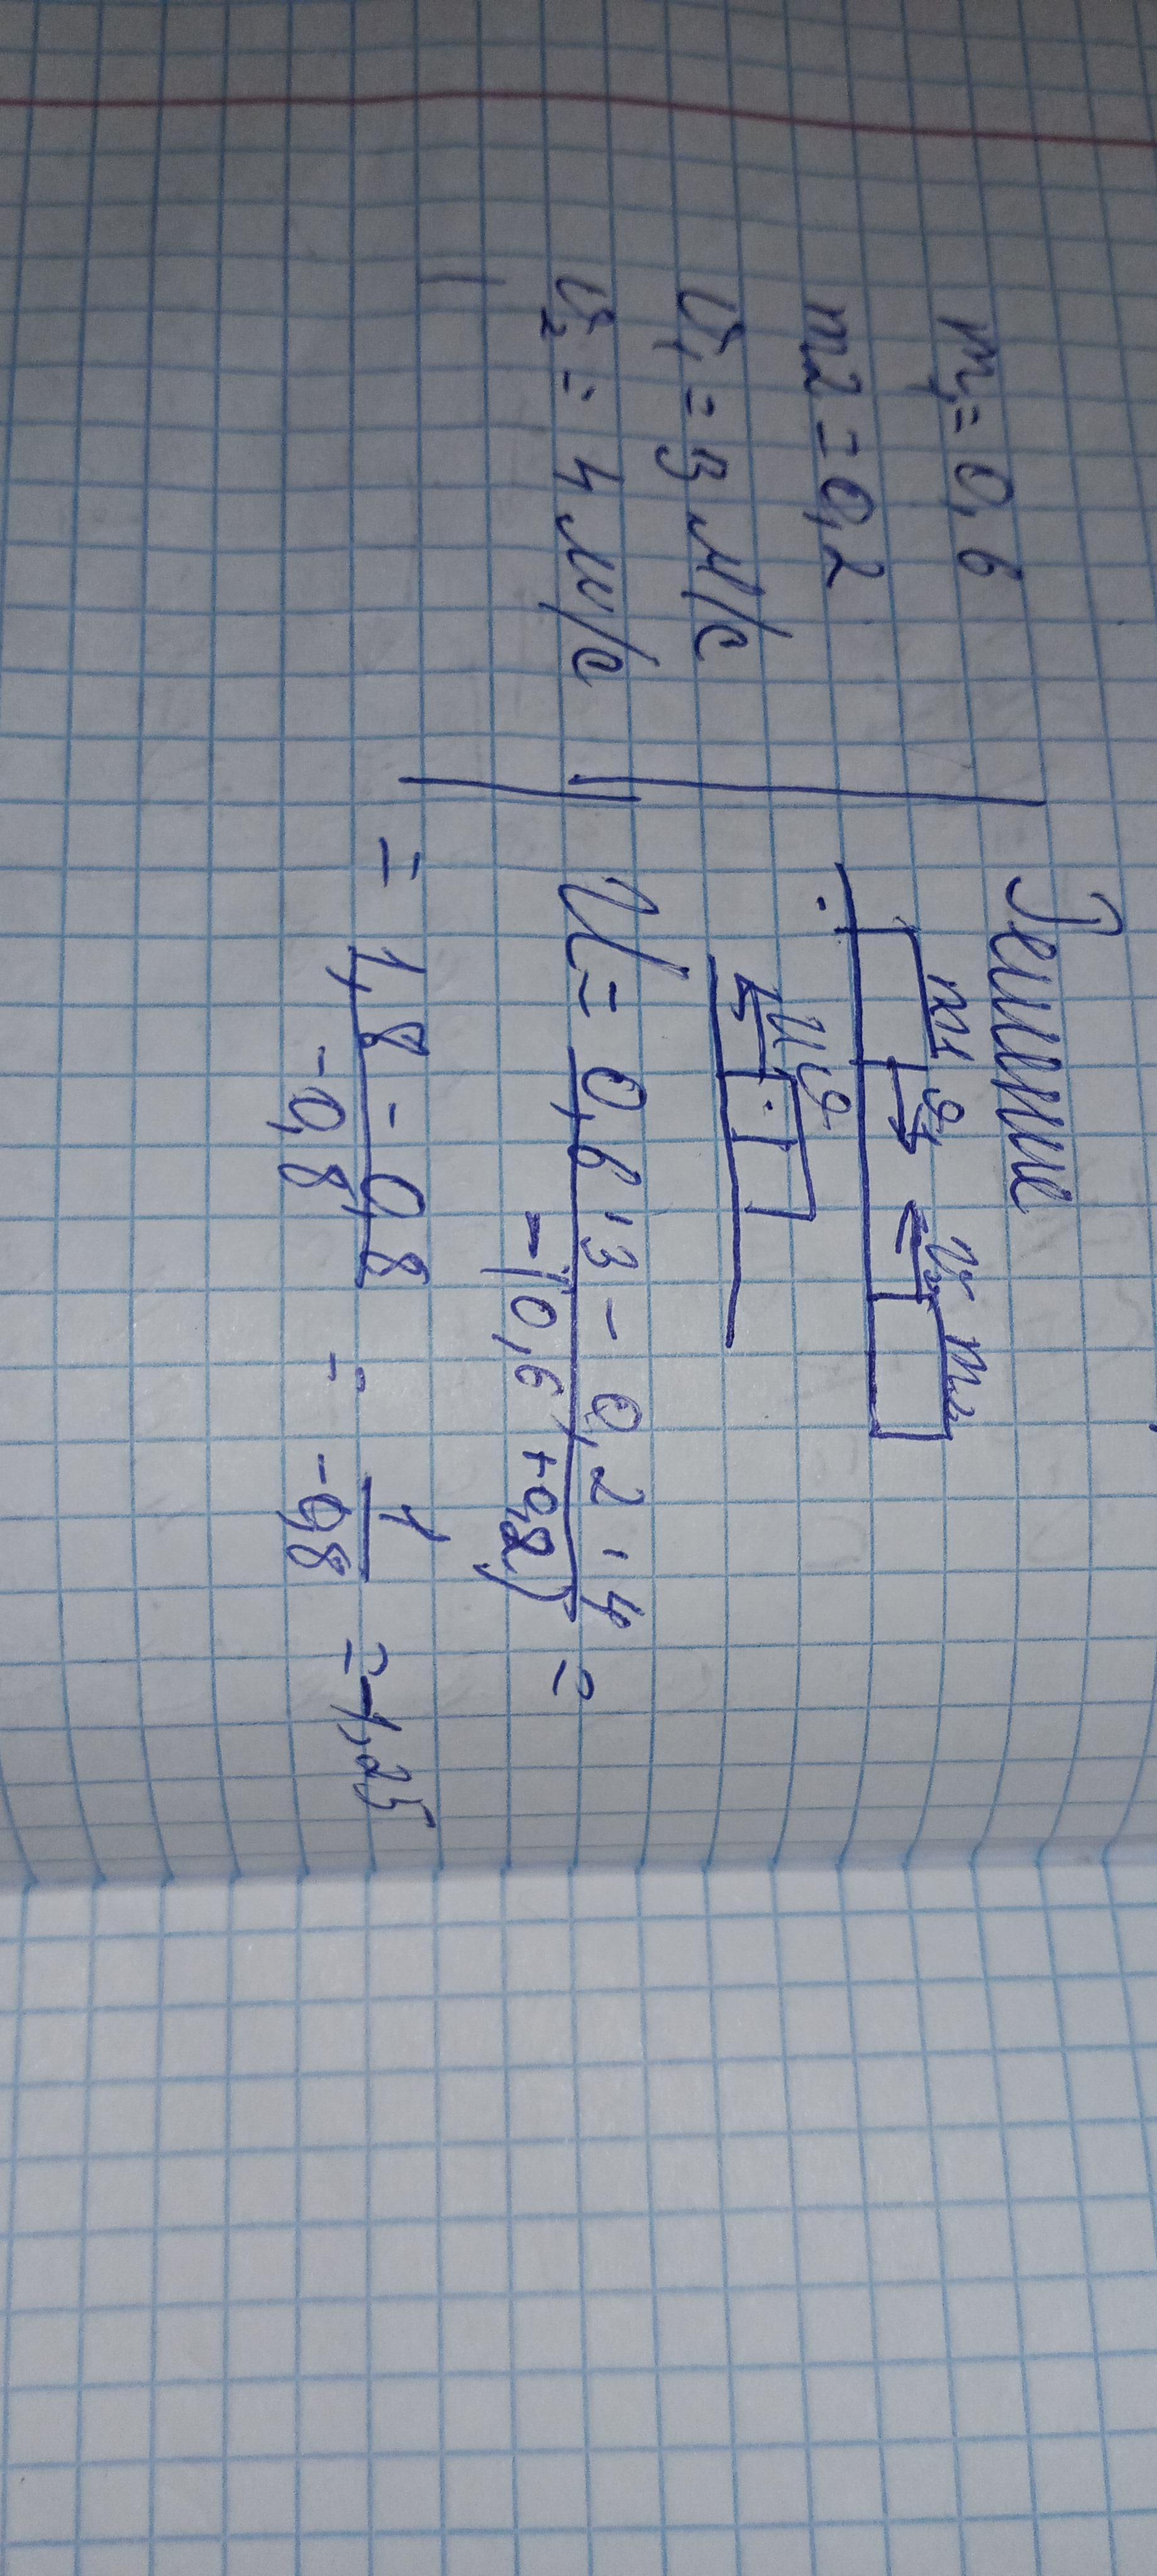 m₁ = 0,6
m2 = 0,2
υ₁ = 3 м/с
υ₂ = 4 м/с
Решение
m₁ υ₁ υ₂ m₂
U
U = (0,6 · 3 - 0,2 · 4) / -(0,6 + 0,2) =
= (1,8 - 0,8) / -0,8 = 1 / -0,8 = -1,25